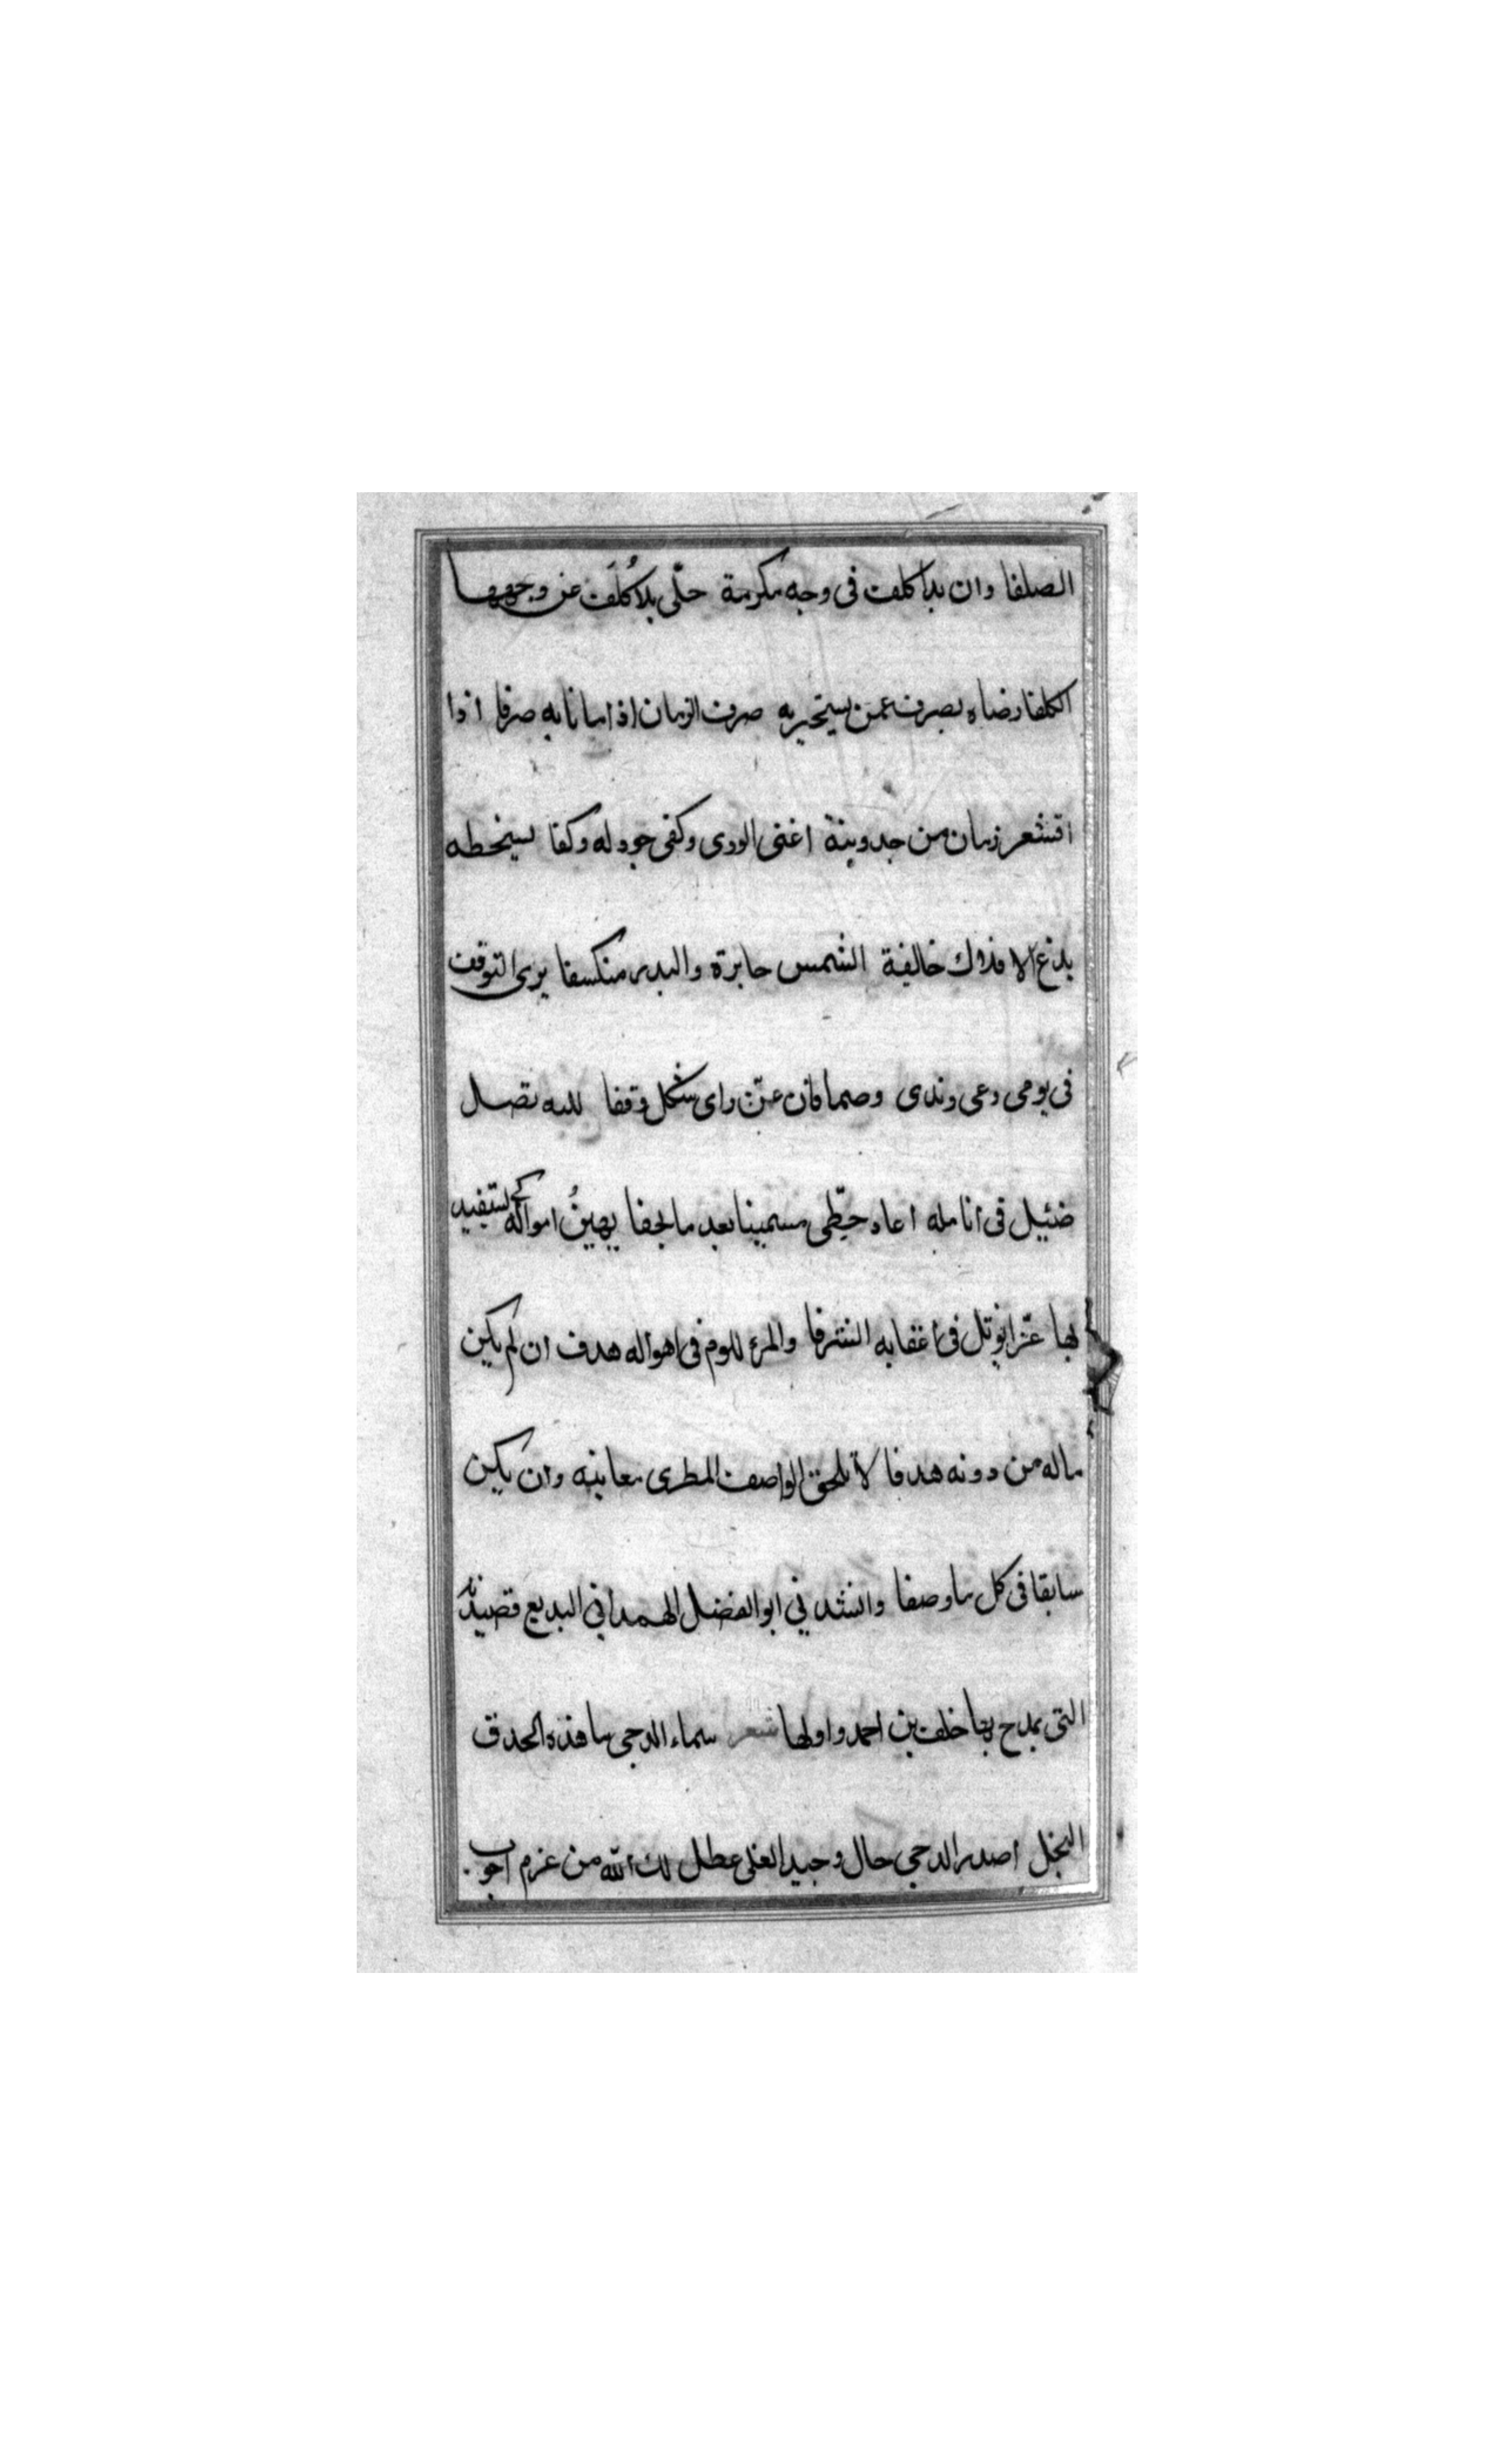 الصلفا وان بدا كلف فى وجه مكرمة حلّى بلا كُلَف عن وجهها
الكلفا رضاه يصرف عمن يستجير به صرف الزمان اذا ما نابه صرفا اذا
اقشعر زمان من جدوبتة اغنى الورى وكفى جود له وكفا لسخطه
يدع الافلاك خالفية الشمس حايرة والبدر منكسفا يرى التوقف
فى يومى دعى وندى وصما فان عنّ راى مشكل وقفا لديه نصل
ضئيل فى انامله اعاد حظّى سمينا بعد ما نحفا يهينُ امواله كى يستفيد
بها عزّا يؤثل فى اعقابه الشرفا والمرء للوم فى اهواله هدف ان لم يكن
ماله من دونه هدفا لا يلحق الواصف المطرى معانيه وان يكن
سابقا فى كل ما وصفا وانشدني ابو الفضل الهمداني البديع قصيدته
التى يمدح بها خلف بن احمد واولها شعر سماء الدجى ما هذه الحدق
النجل اصدر الدجى حال وجيد العلى عطل لك الله من عزم اجوب